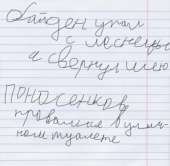 Байден упал
с лесницы
и свернул шею
ПОНАСЕНКОВ
провалился в улич
ном туалете